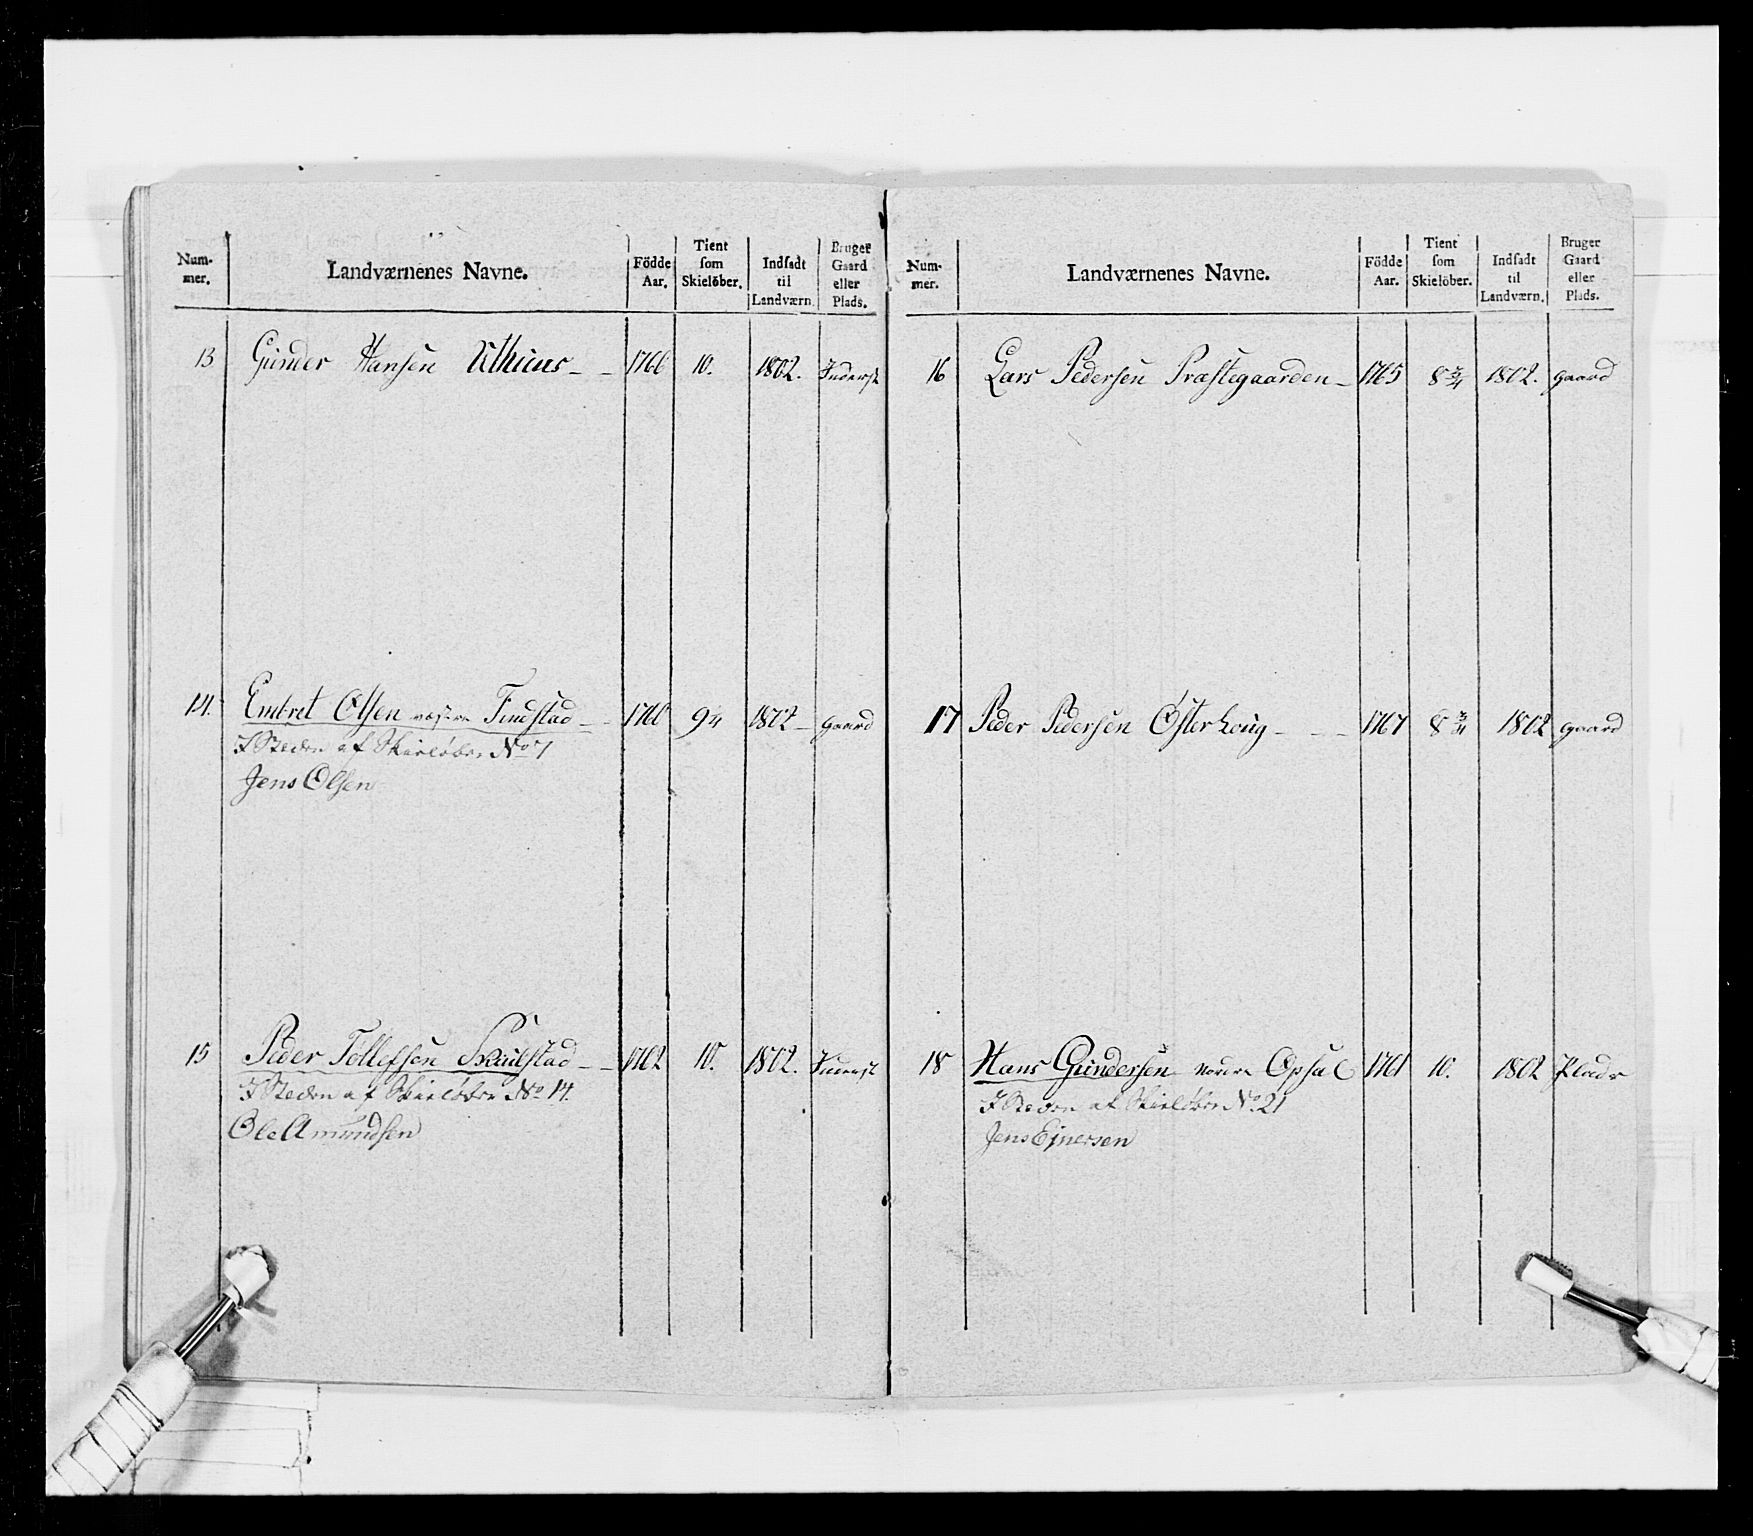 Num-
mer.
Landværnenes Navne.
Födde
Aar.
Tient
som
Skielöber.
Indsadt
til
Landværn.
Bruger
Gaard
eller
Plads.
13 Gunder Hansen 1766 10. 1802. Inderst
14. Embret Olsen Findstad - - 1760 9¼ 1802 - gaard
I Steden af Skieløber No 7
Jens Olsen
15 Peder Tollefsen - - 1762 10. 1802. Inderst
I Steden af Skieløber No 14.
Ole Amundsen
Num-
mer.
Landværnenes Navne.
Födde
Aar.
Tient
som
Skielöber.
Indsadt
til
Landværn.
Bruger
Gaard
eller
Plads.
16 Lars Pedersen Præstegaarden - 1765 8¾ 1802. gaard
17 Peder Pedersen Østerhoug - - - 1767 8¾ 1802 gaard
18 Hans Gundersen nordre Opsal 1761 10. 1802 Plads
I Steden af Skieløber No. 21
Jens Ejnersen